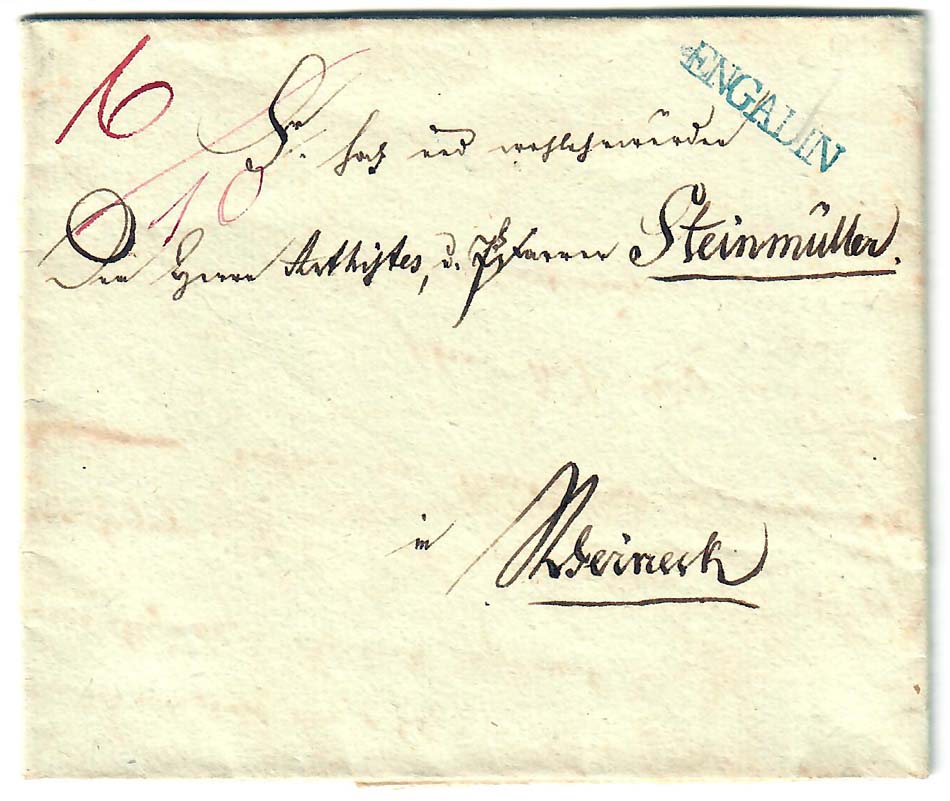 ENGADIN
6
10
Sr. hoch und wohlehrwürden
Den Herrn Anthistes, u. Pfarrer Steinmüller.
in Rheineck